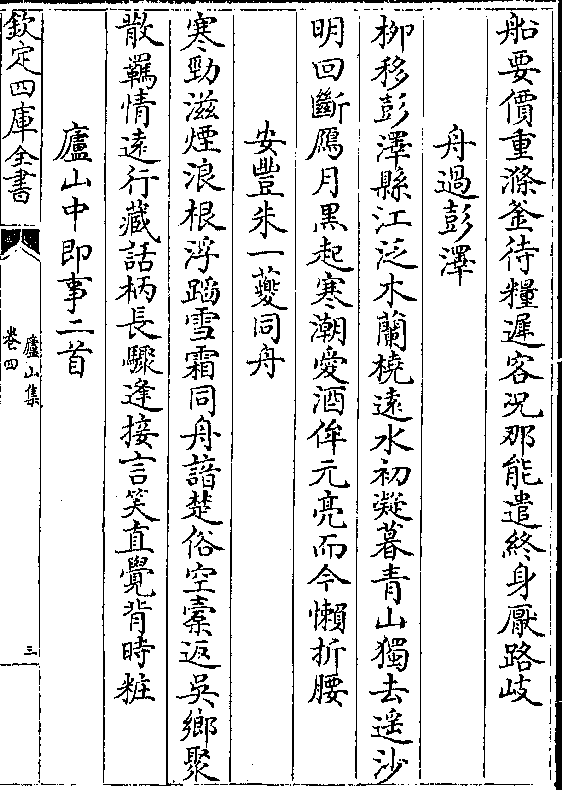 船要價重滌釜待糧遲客況那能遣終身厭路岐
舟過彭澤
柳移彭澤縣江泛木蘭橈遠水初凝暮青山獨去遥沙
明回斷鴈月黒起寒潮愛酒侔元亮而今懶折腰
安豐朱一夔同舟
寒勁滋煙浪根浮蹈雪霜同舟諳楚俗空橐返吳鄉聚
散羈情遠行藏話柄長驟逢接言笑直覺背時粧
廬山中即事二首
欽定四庫全書
廬山集
卷四
三